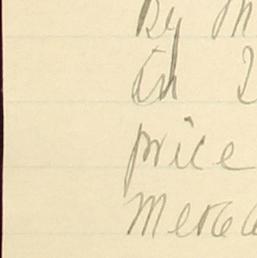 By M
in 2
price
Merca